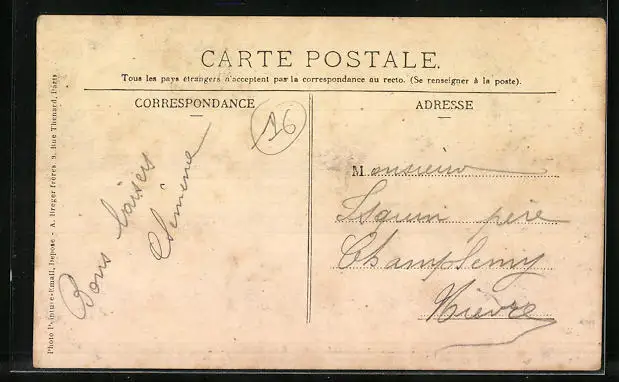 CARTE POSTALE.
Tous les pays étrangers n'acceptent pas la correspondance au recto. (Se renseigner à la poste).
CORRESPONDANCE
ADRESSE
16
Bons baisers
Clémence
Monsieur
père
Champlemy
Nièvre
Photo Peinture-Email, Déposé - A. Breger frères 9, Rue Thenard, Paris